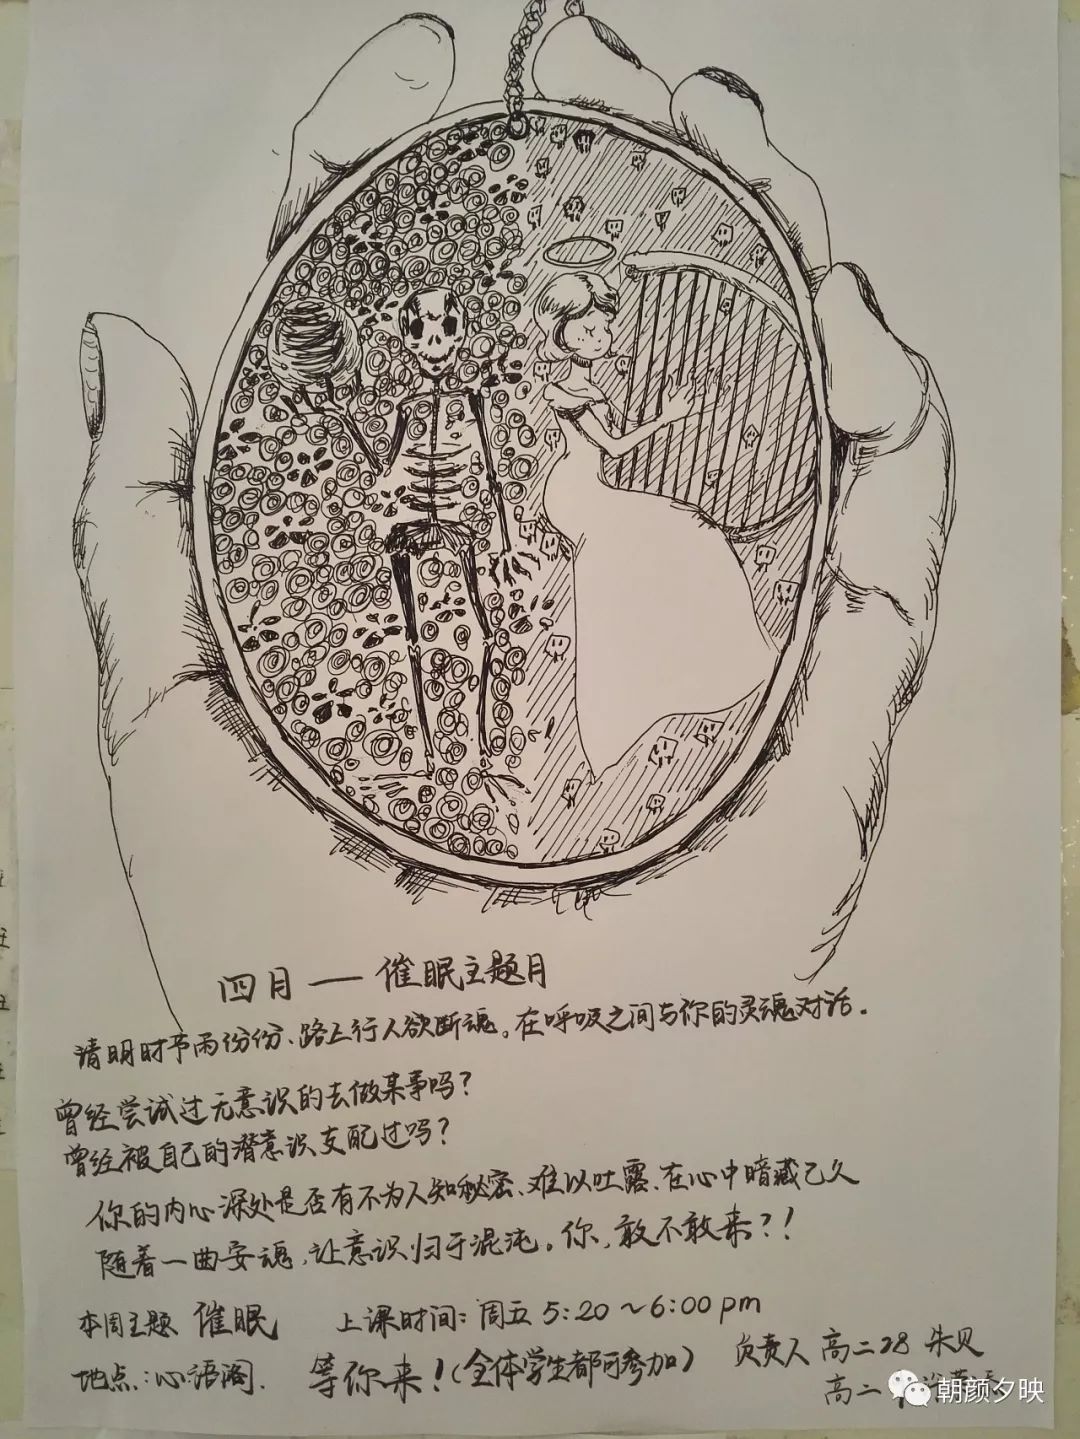 四月 — 催眠主题月
清明时节雨份份、路上行人欲断魂。在呼吸之间与你的灵魂对话。
曾经尝试过无意识的去做某事吗？
曾经被自己的潜意识支配过吗？
你的内心深处是否有不为人知秘密、难以吐露、在心中暗藏已久
随着一曲安魂，让意识归于混沌。你，敢不敢来？！
本周主题 催眠 上课时间：周五 5:20～6:00 pm
地点：心语阁. 等你来！（全体学生都可参加） 负责人 高二28 朱贝
高二
朝颜夕映